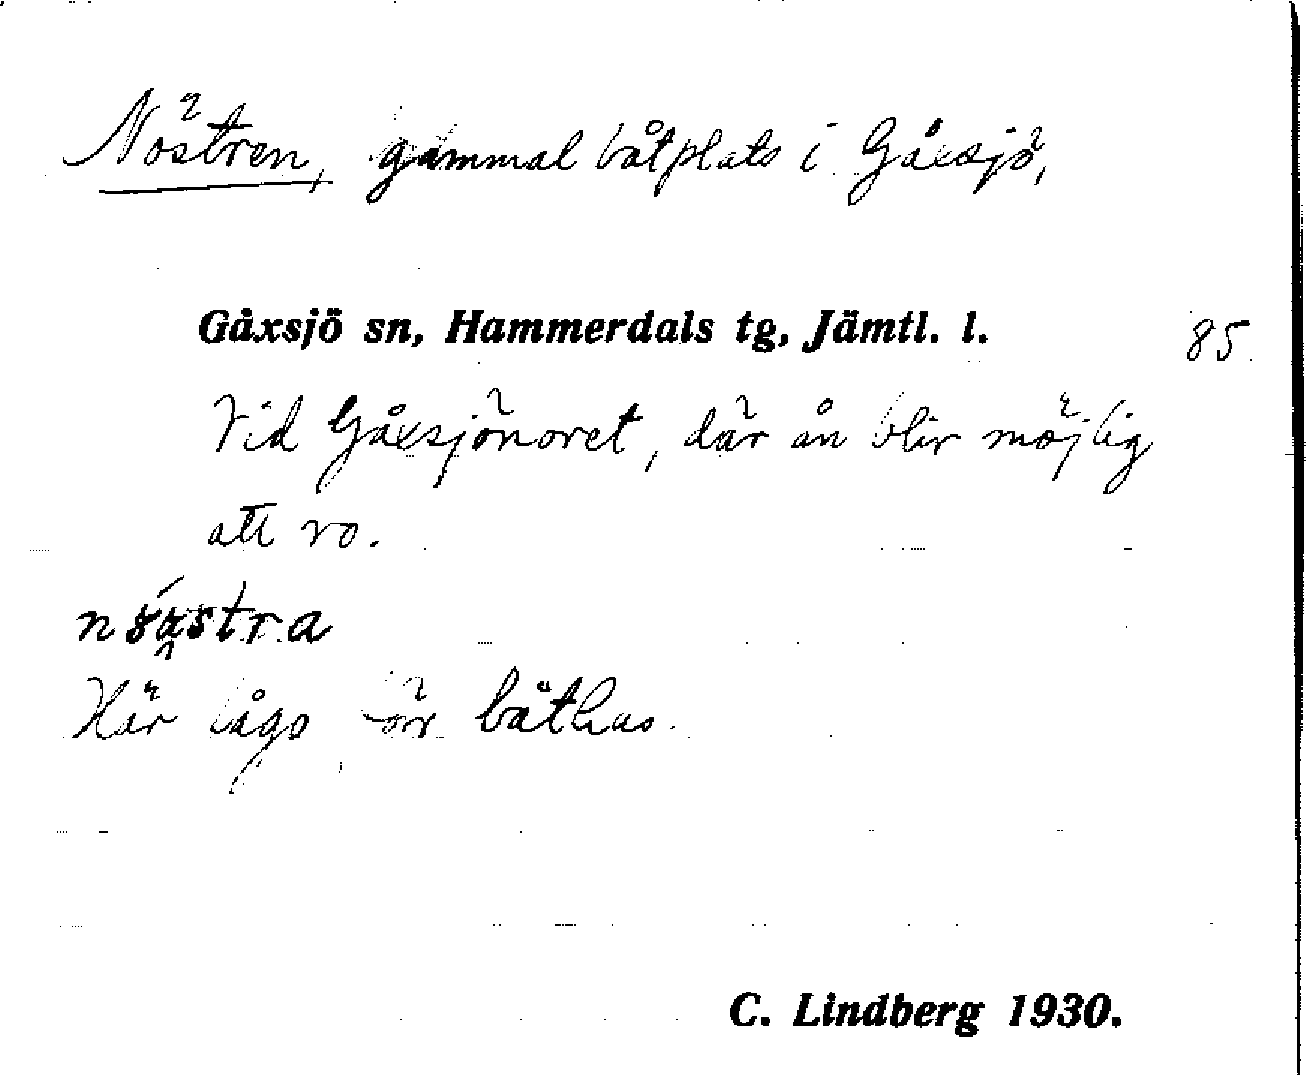 Nöstren, gammal båtplats i Gåxsjö,
Gåxsjö sn, Hammerdals tg, Jämtl. l.
85.
Vid Gåxsjönoret, där ån blir möjlig
att ro.
Här lågo båthus.
C. Lindberg 1930.